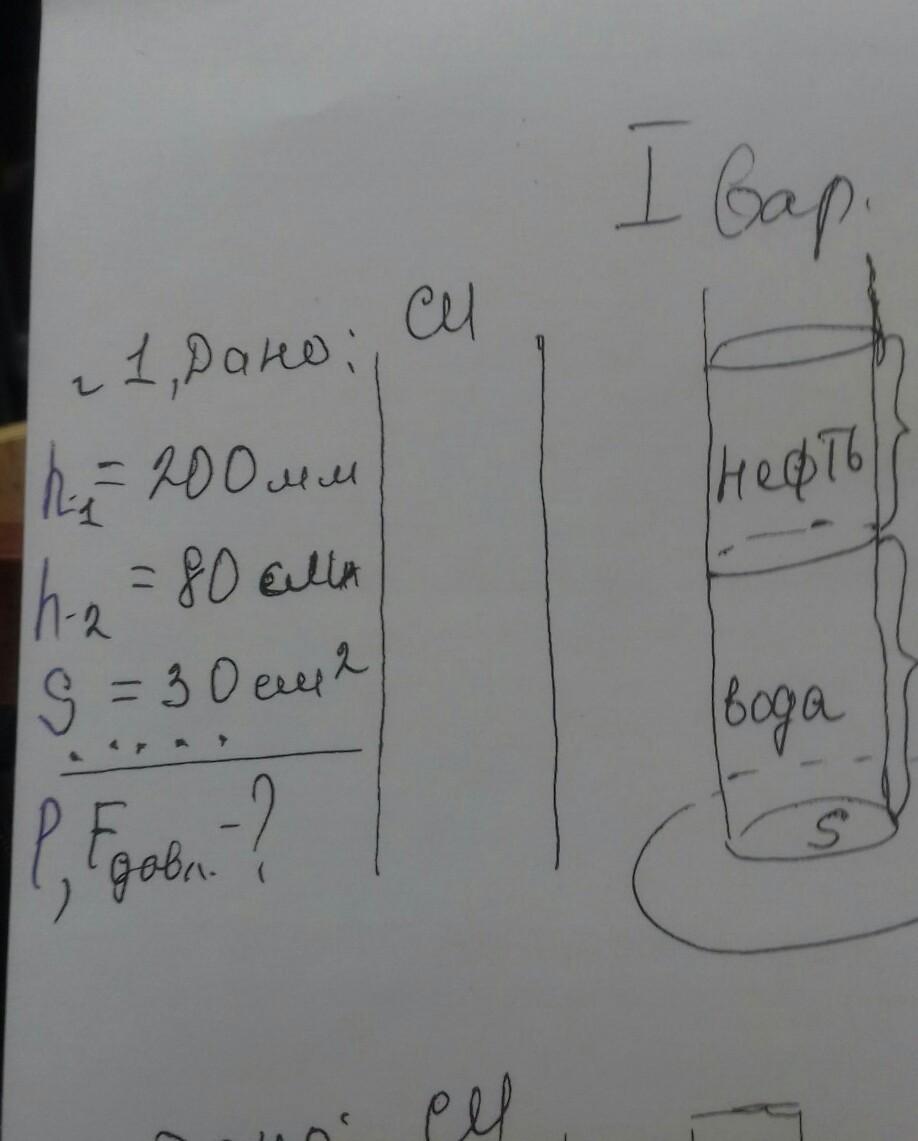 I вар.
СИ
1, Дано:
h₁ = 200 мм
h₂ = 80 см
S = 30 см²
.....
P, Fдавл. - ?
нефть
вода
S
СИ